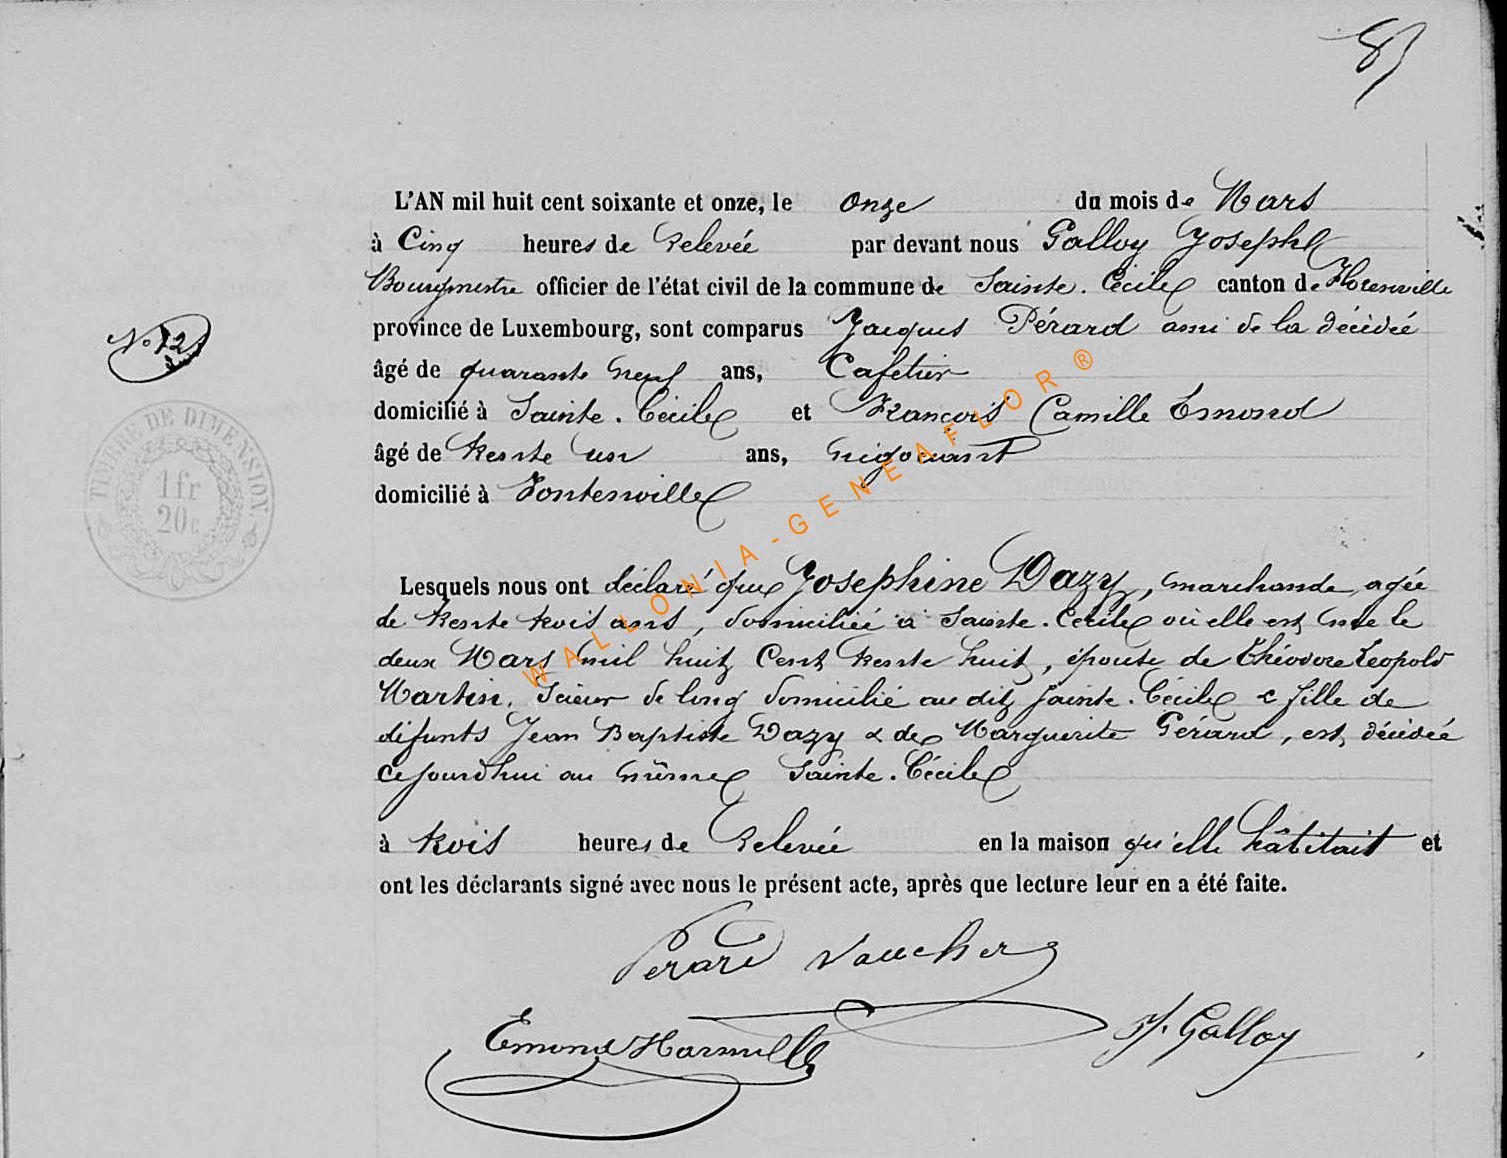 85
L'AN mil huit cent soixante et onze, le onze du mois de Mars
à Cinq heures de Relevée par devant nous Galloy Joseph
Bourgmestre officier de l'état civil de la commune de Sainte. Cécile canton de Florenville
province de Luxembourg, sont comparus Jacques Pérard ami de la décédée
No 12
âgé de quarante neuf ans, Cafetier
domicilié à Sainte. Cécile et François Camille Esmond
âgé de trente un ans, négociant
domicilié à Fontenoille
TIMBRE DE DIMENSION
1 fr
20c
WALLONIA-GENEAFLOR®
Lesquels nous ont déclaré que Josephine Dazy, marchande, agée
de trente trois ans, domiciliée à Sainte. Cécile où elle est née le
deux Mars mil huit Cent trente huit, épouse de Théodore Leopold
Martin, Scieur de long domicilié au dit Sainte. Cécile & fille de
défunts Jean Baptiste Dazy & de Marguerite Gérard, est décédée
cejourdhui au même Sainte. Cécile
à trois heures de Relevée en la maison qu'elle habitait et
ont les déclarants signé avec nous le présent acte, après que lecture leur en a été faite.
Perard Vaucher
Emond J. Galloy